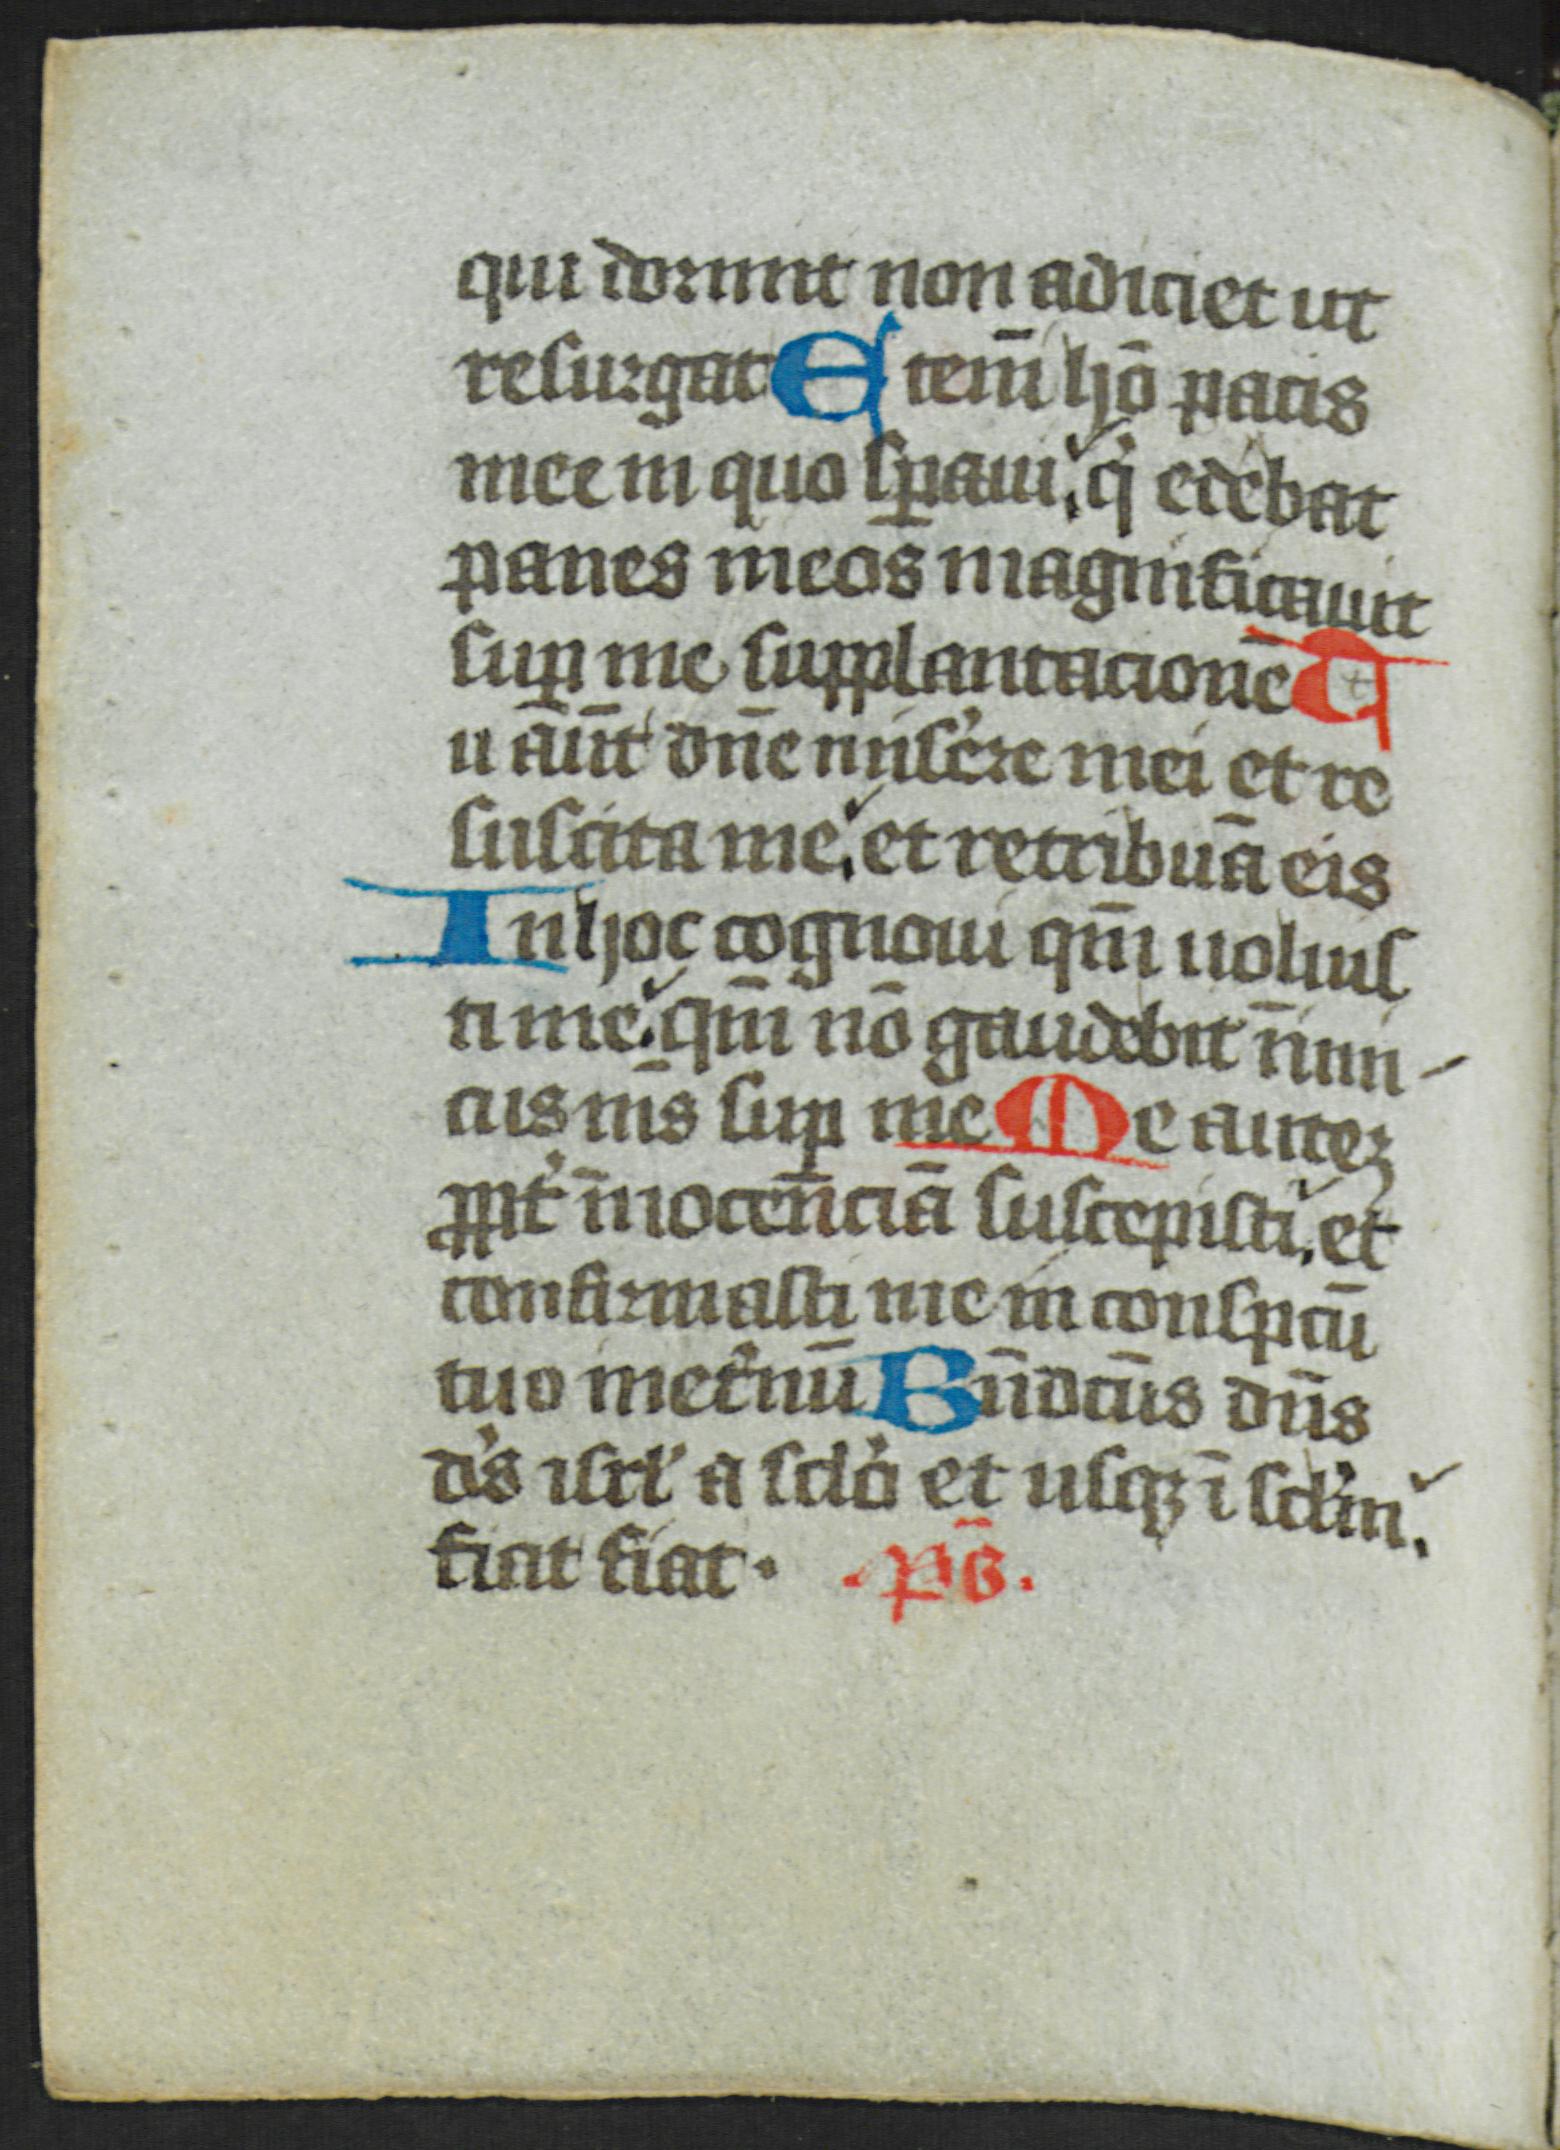 qui dormit non adiciet ut
resurgat Etem̄ hō pacis
mee in quo sꝑaui, qͥ edebat
panes meos magnificauit
suꝑ me supplantacionē T
u aūt dn̄e mise͛re mei et re
suscita me, et retribuā eis
In hoc cognoui qm̄ uoluis
ti me. qm̄ nō gaudebit īnimi-
cus m̄s suꝑ me Me autez
ꝓpt͛ īnocenciā suscepisti, et
confirmasti me in conspectū
tuo inet͛nū Bn̄dcūs dn̄s
d's isrl' a sclo' et usqꝫ ī scl'm.
fiat fiat · .pš.